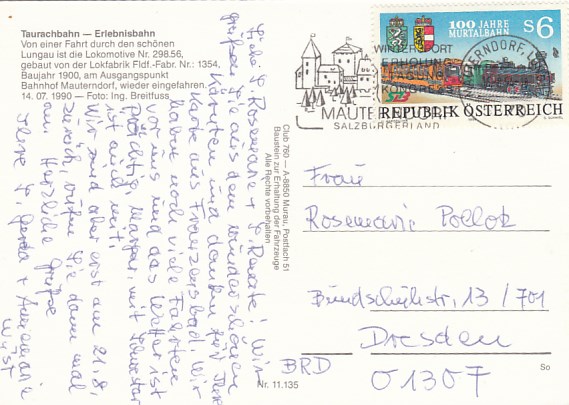 Taurachbahn — Erlebnisbahn
Von einer Fahrt durch den schönen
Lungau ist die Lokomotive Nr. 298.56,
gebaut von der Lokfabrik Fldf.-Fabr. Nr.: 1354,
Baujahr 1900, am Ausgangspunkt
Bahnhof Mauterndorf, wieder eingefahren.
14. 07. 1990 — Foto: Ing. Breitfuss
100 JAHRE
MURTALBAHN
S6
REPUBLIK ÖSTERREICH
WINTERSPORT
ERHOLUNG
MAUTERNDORF
SALZBURGERLAND
Club 760 — A-8850 Murau, Postfach 51
Baustein zur Erhaltung der Fahrzeuge
Alle Rechte vorbehalten
Liebe Rosemarie + Renate! Wir
grüßen Sie aus dem wunderschönen
Kärnten und danken für Ihre
Karte aus Franzensbad. Wir
haben noch viele Fahrten
vor uns und das Wetter ist
prächtig,
ist mit.
Wir sind aber erst am 21.8.
zurück, rufen Sie dann mal
an. Herzliche Grüße
Ihre Gerda + Annemarie
Wüst
Frau
Rosemarie Pollok
Bundschuhstr. 13 / 701
Dresden
BRD
O 1307
Nr. 11.135
So